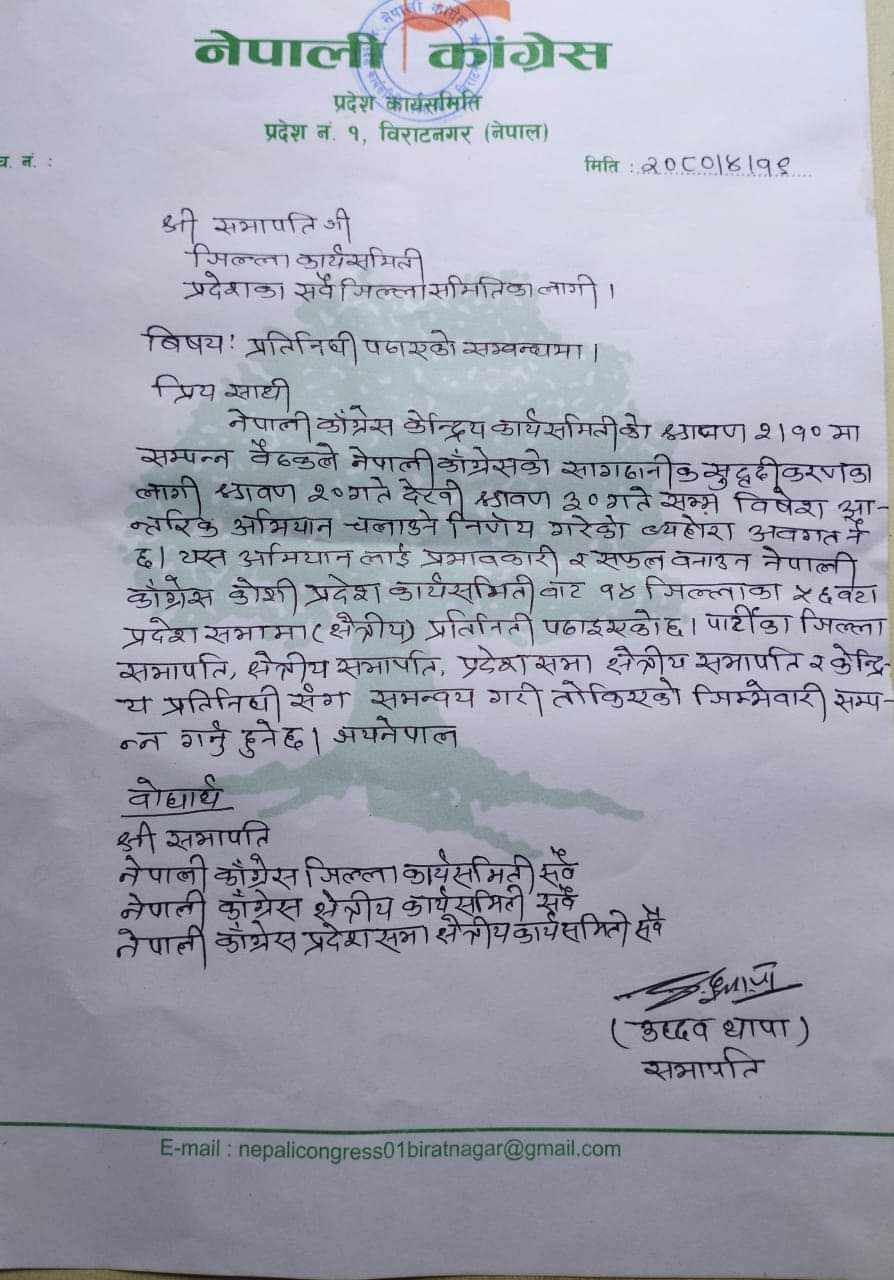 नेपाली कांग्रेस
प्रदेश कार्यसमिति
प्रदेश नं. १, विराटनगर (नेपाल)
च. नं. :
मिति : २०८०।४।१९
श्री सभापति जी
जिल्ला कार्यसमिती
प्रदेशका सवै जिल्ला समितिका लागी ।
बिषय: प्रतिनिधी पठाएको सम्वन्धमा ।
प्रिय साथी
नेपाली काँग्रेस केन्द्रिय कार्यसमितीको श्रावण २।१० मा
सम्पन्न वैठकले नेपाली काँग्रेसको सागठानीक सुदृढीकरणका
लागी श्रावण २० गते देखी श्रावण ३० गते सम्म विषेश आ-
न्तरिक अभियान चलाउने निर्णय गरेको व्यहोरा अवगत नै
छ । यस अभियान लाई प्रभावकारी र सफल वनाउन नेपाली
काँग्रेस कोशी प्रदेश कार्यसमिती वाट १४ जिल्लाका ५६ वटा
प्रदेश सभामा (क्षेत्रीय) प्रतिनिती पठाइएकोछ । पार्टीका जिल्ला
सभापति, क्षेत्रीय सभापति, प्रदेश सभा क्षेत्रीय सभापति र केन्द्रि-
य प्रतिनिधी संग समन्वय गरी तोकिएको जिम्मेवारी सम्प-
न्न गर्नु हुनेछ । जयनेपाल
वोधार्थ
श्री सभापति
नेपाली काँग्रेस जिल्ला कार्यसमिती सवै
नेपाली काँग्रेस क्षेत्रीय कार्यसमिती सवै
नेपाली काँग्रेस प्रदेश सभा क्षेत्रीय कार्यसमिती सवै
(उद्धव थापा)
सभापति
E-mail : nepalicongress01biratnagar@gmail.com